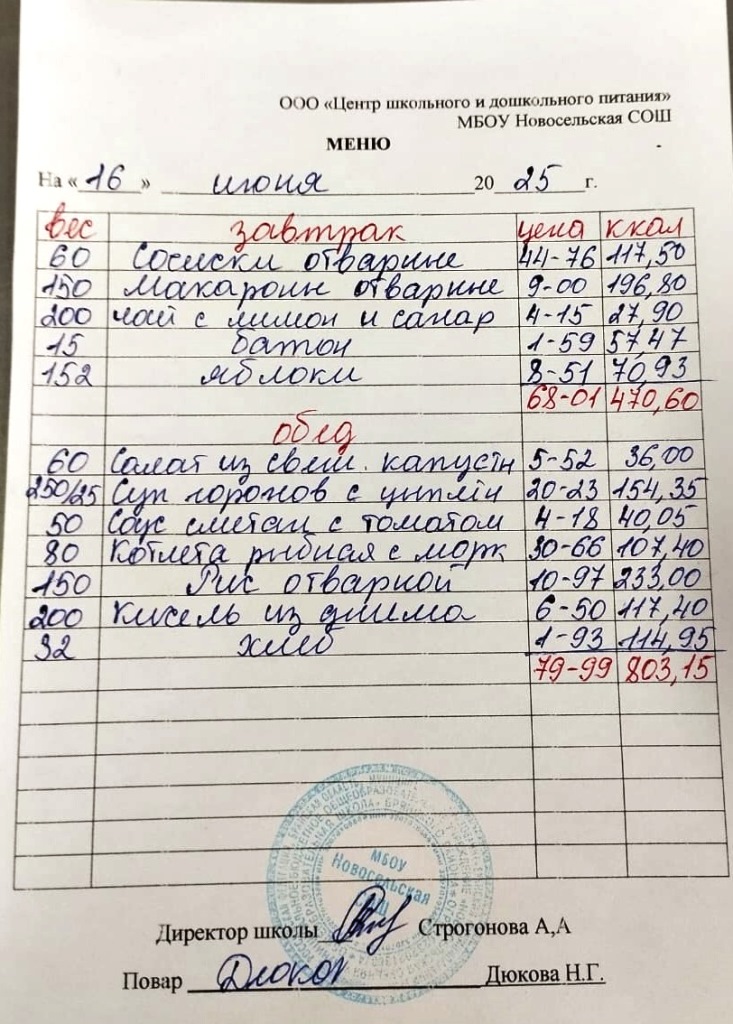 ООО «Центр школьного и дошкольного питания»
МБОУ Новосельская СОШ
МЕНЮ
На «16» июня 2025 г.
вес завтрак цена ккал
60 Сосиски отварные 44-76 117,50
150 Макароны отварные 9-00 196,80
200 чай с лимон и сахар 4-15 27,90
15 батон 1-59 57,47
152 яблоки 8-51 70,93
68-01 470,60
обед
60 Салат из свеж. капусты 5-52 36,00
250/25 Суп горохов с цыплён 20-23 154,35
50 Соус сметан с томатом 4-18 40,05
80 Котлета рыбная с морк 30-66 107,40
150 Рис отварной 10-97 233,00
200 Кисель из джема 6-50 117,40
32 хлеб 1-93 114,95
79-99 803,15
МБОУ
Новосельская
СОШ
Директор школы Строгонова А,А
Повар Дюкова Н.Г.